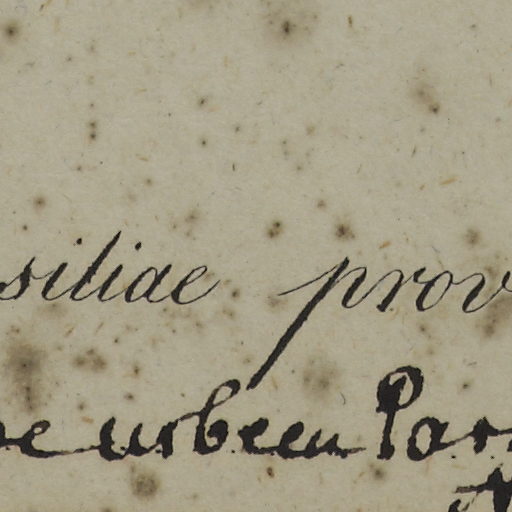 siliae prov
urbem Par